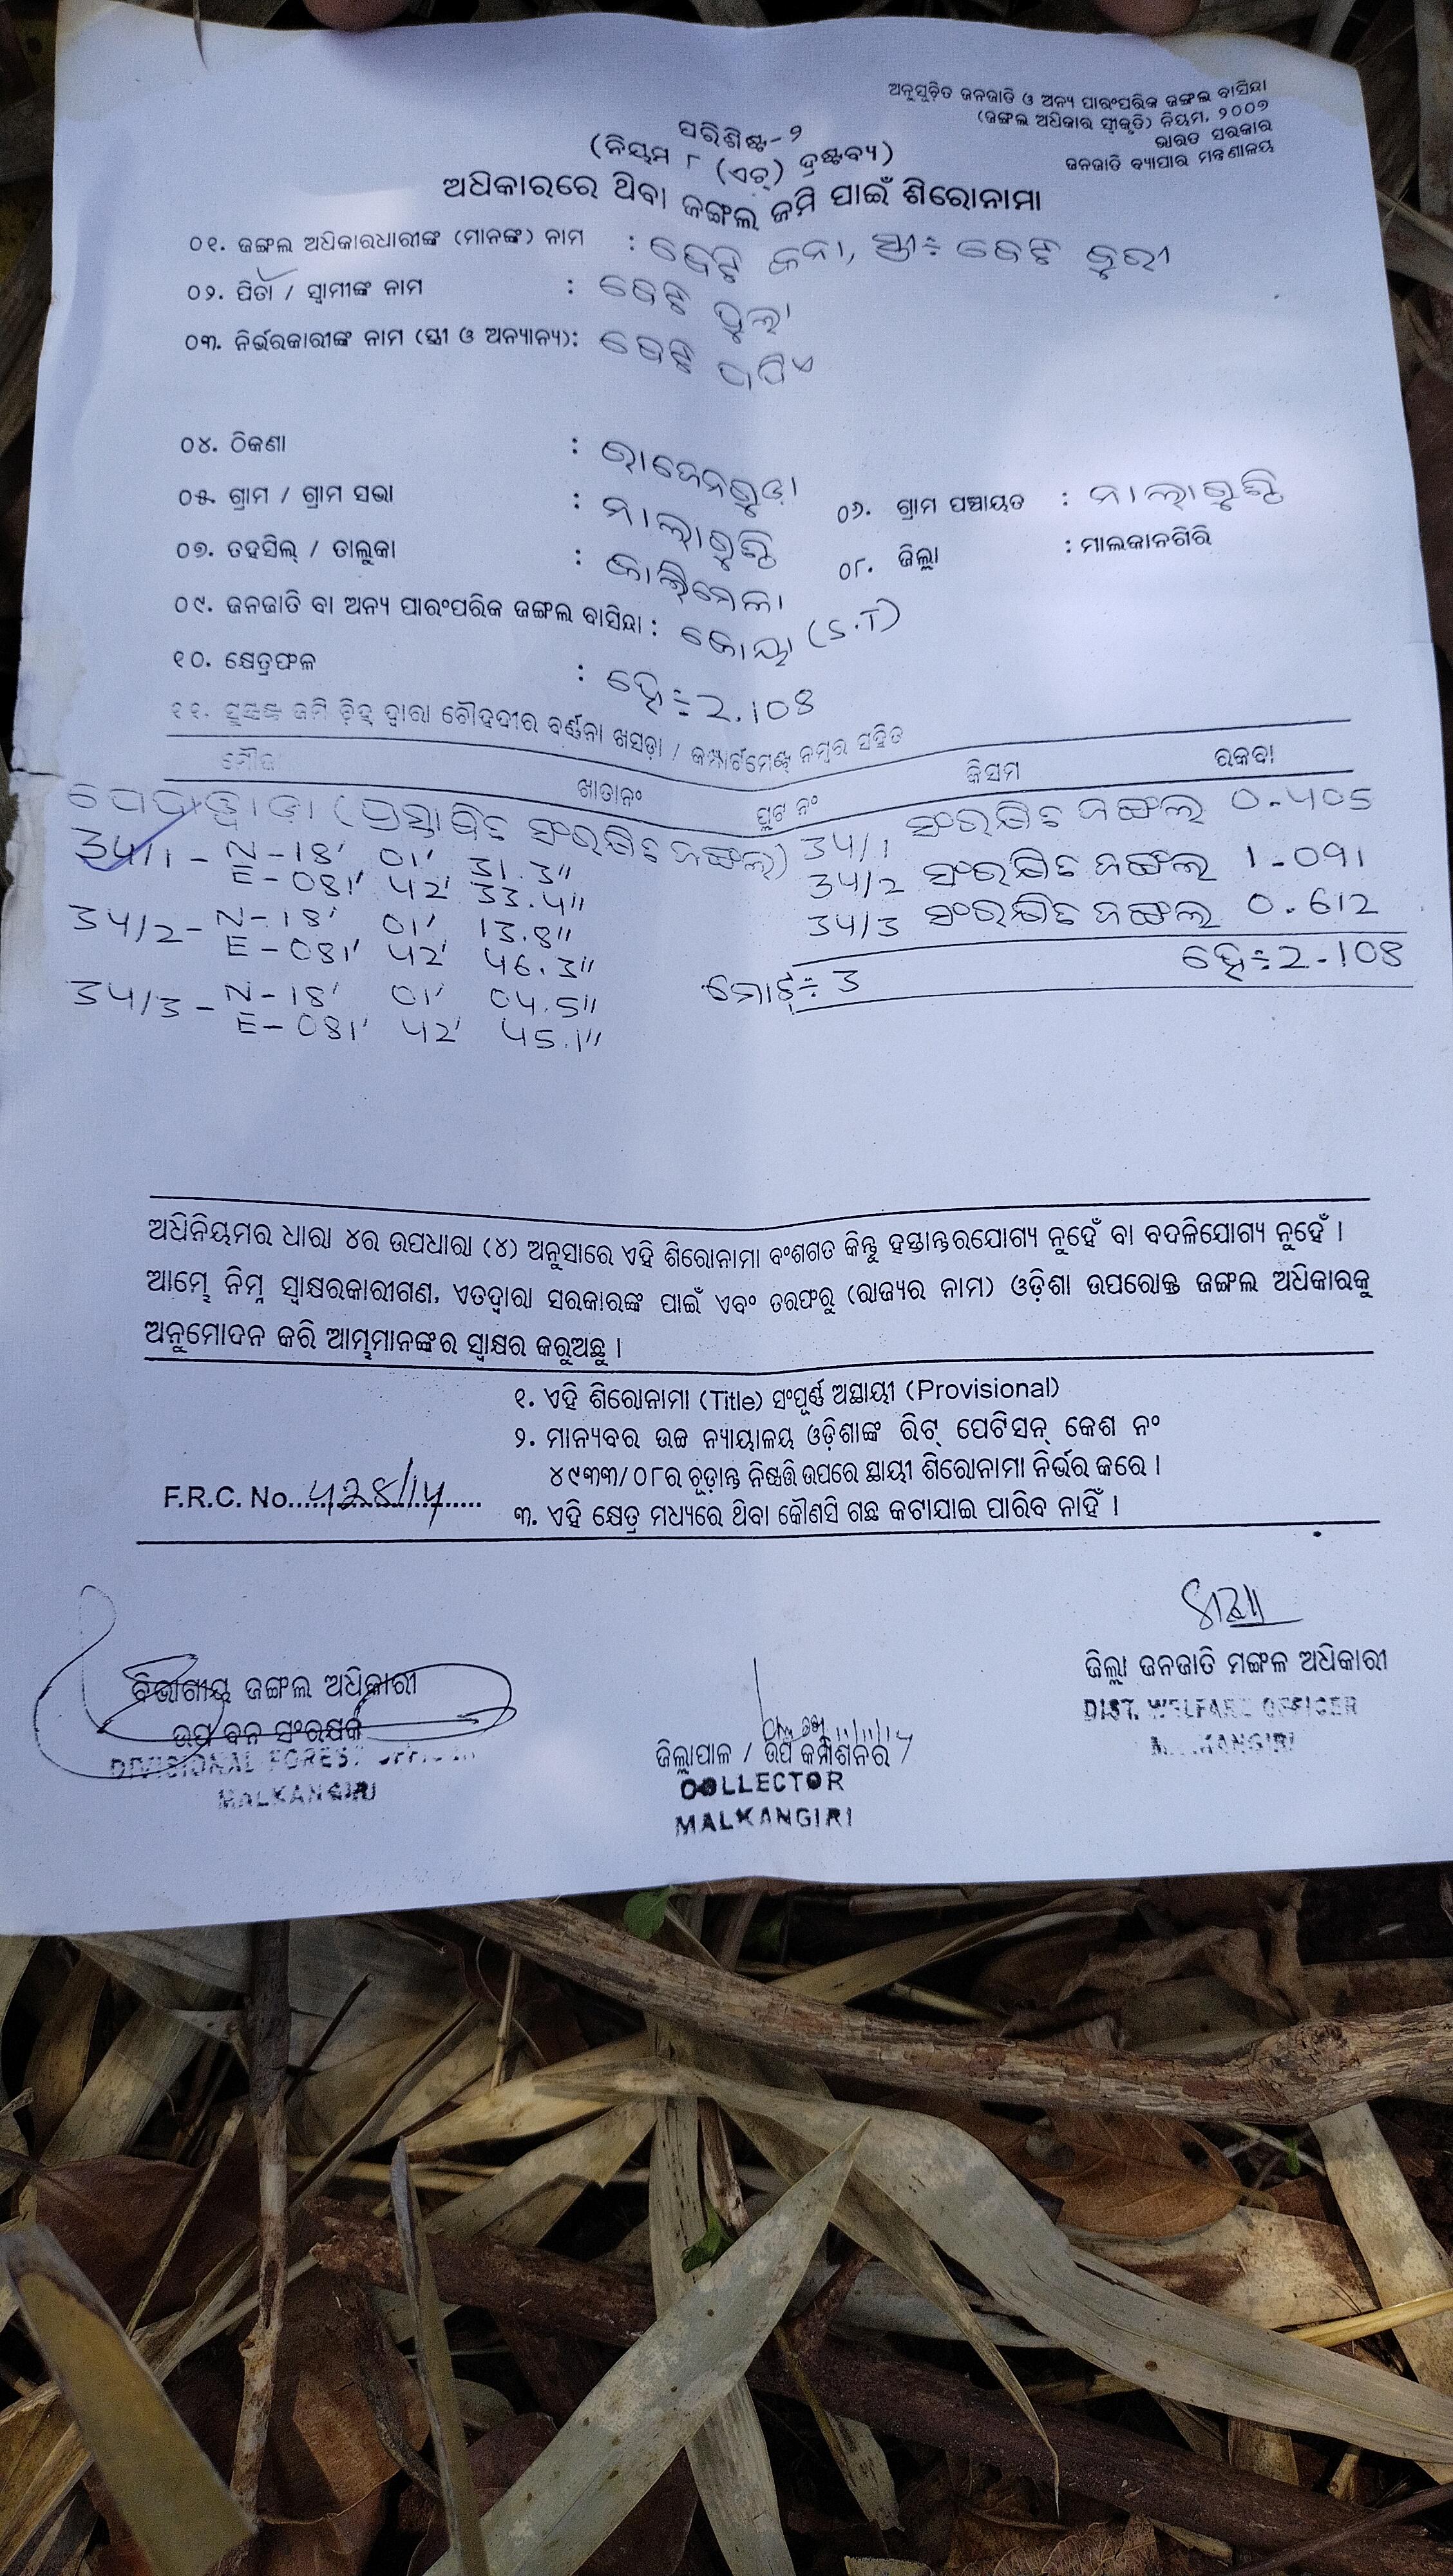 ଅନୁସୂଚିତ ଜନଜାତି ଓ ଅନ୍ୟ ପାରଂପରିକ ଜଙ୍ଗଲ ବାସିନ୍ଦା
(ଜଙ୍ଗଲ ଅଧିକାର ସ୍ୱୀକୃତି) ନିୟମ, ୨୦୦୭
ଭାରତ ସରକାର
ଜନଜାତି ବ୍ୟାପାର ମନ୍ତ୍ରଣାଳୟ
ପରିଶିଷ୍ଟ-୨
(ନିୟମ ୮ (ଏଚ୍) ଦ୍ରଷ୍ଟବ୍ୟ)
ଅଧିକାରରେ ଥିବା ଜଙ୍ଗଲ ଜମି ପାଇଁ ଶିରୋନାମା
୦୧. ଜଙ୍ଗଲ ଅଧିକାରଧାରୀଙ୍କ (ମାନଙ୍କ) ନାମ :
୦୨. ପିତା / ସ୍ୱାମୀଙ୍କ ନାମ :
୦୩. ନିର୍ଭରକାରୀଙ୍କ ନାମ (ସ୍ତ୍ରୀ ଓ ଅନ୍ୟାନ୍ୟ):
୦୪. ଠିକଣା :
୦୫. ଗ୍ରାମ / ଗ୍ରାମ ସଭା : ୦୬. ଗ୍ରାମ ପଞ୍ଚାୟତ :
୦୭. ତହସିଲ୍ / ତାଲୁକା : କାଲିମେଳା ୦୮. ଜିଲ୍ଲା : ମାଲକାନଗିରି
୦୯. ଜନଜାତି ବା ଅନ୍ୟ ପାରଂପରିକ ଜଙ୍ଗଲ ବାସିନ୍ଦା : କୋୟା (S.T)
୧୦. କ୍ଷେତ୍ରଫଳ : ହେ÷2.108
୧୧. ଜମି ଚିହ୍ନ ଦ୍ୱାରା ଚୌହଦୀର ବର୍ଣ୍ଣନା ଖସଡ଼ା / କମ୍ପାର୍ଟମେଣ୍ଟ୍ ନମ୍ବର ସହିତ
ମୌଜା ଖାତାନଂ ପ୍ଲଟ ନଂ କିସମ ରକବା
(ପ୍ରସ୍ତାବିତ ସଂରକ୍ଷିତ ଜଙ୍ଗଲ) 34/1 ସଂରକ୍ଷିତ ଜଙ୍ଗଲ 0.405
34/1 - N-18' 01' 31.3" 34/2 ସଂରକ୍ଷିତ ଜଙ୍ଗଲ 1.091
E-081' 42' 33.4" 34/3 ସଂରକ୍ଷିତ ଜଙ୍ଗଲ 0.612
34/2- N-18' 01' 13.8"
E-081' 42' 46.3" ମୋଟ÷ 3 ହେ÷2.108
34/3- N-18' 01' 04.5"
E-081' 42' 45.1"
ଅଧିନିୟମର ଧାରା ୪ର ଉପଧାରା (୪) ଅନୁସାରେ ଏହି ଶିରୋନାମା ବଂଶଗତ କିନ୍ତୁ ହସ୍ତାନ୍ତରଯୋଗ୍ୟ ନୁହେଁ ବା ବଦଳିଯୋଗ୍ୟ ନୁହେଁ ।
ଆମ୍ଭେ ନିମ୍ନ ସ୍ୱାକ୍ଷରକାରୀଗଣ, ଏତଦ୍ୱାରା ସରକାରଙ୍କ ପାଇଁ ଏବଂ ତରଫରୁ (ରାଜ୍ୟର ନାମ) ଓଡ଼ିଶା ଉପରୋକ୍ତ ଜଙ୍ଗଲ ଅଧିକାରକୁ
ଅନୁମୋଦନ କରି ଆମ୍ଭମାନଙ୍କର ସ୍ୱାକ୍ଷର କରୁଅଛୁ ।
୧. ଏହି ଶିରୋନାମା (Title) ସଂପୂର୍ଣ୍ଣ ଅସ୍ଥାୟୀ (Provisional)
୨. ମାନ୍ୟବର ଉଚ୍ଚ ନ୍ୟାୟାଳୟ ଓଡ଼ିଶାଙ୍କ ରିଟ୍ ପେଟିସନ୍ କେଶ ନଂ
୪୯୩୩/୦୮ର ଚୂଡ଼ାନ୍ତ ନିଷ୍ପତ୍ତି ଉପରେ ସ୍ଥାୟୀ ଶିରୋନାମା ନିର୍ଭର କରେ ।
F.R.C. No. 428/14
୩. ଏହି କ୍ଷେତ୍ର ମଧ୍ୟରେ ଥିବା କୌଣସି ଗଛ କଟାଯାଇ ପାରିବ ନାହିଁ ।
ଜିଲ୍ଲା ଜନଜାତି ମଙ୍ଗଳ ଅଧିକାରୀ
DIST. WELFARE OFFICER
MALKANGIRI
ବିଭାଗୀୟ ଜଙ୍ଗଲ ଅଧିକାରୀ
ଉପ ବନ ସଂରକ୍ଷକ
DIVISIONAL FOREST OFFICER
MALKANGIRI
ଜିଲ୍ଲାପାଳ / ଉପ କମିଶନର
COLLECTOR
MALKANGIRI